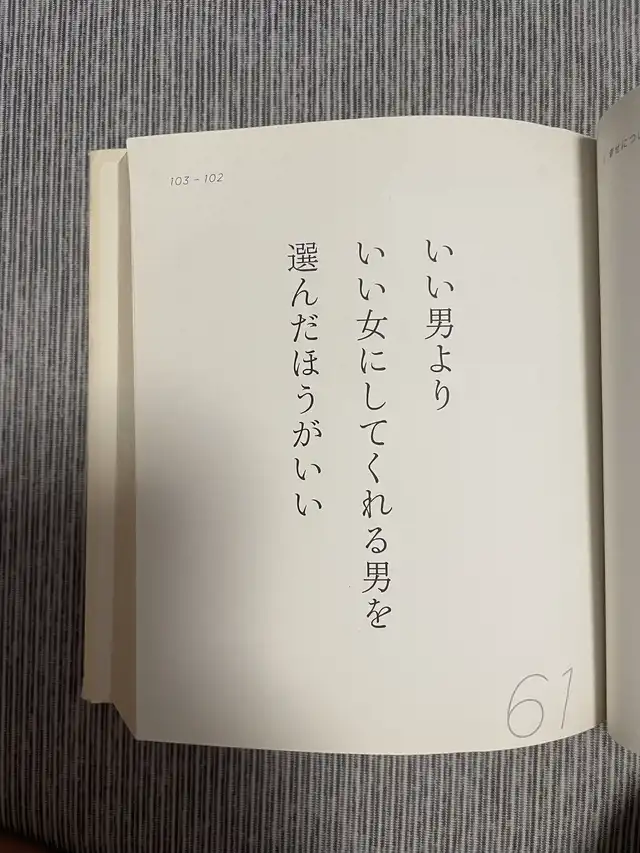 103 – 102
いい男より
いい女にしてくれる男を
選んだほうがいい
61